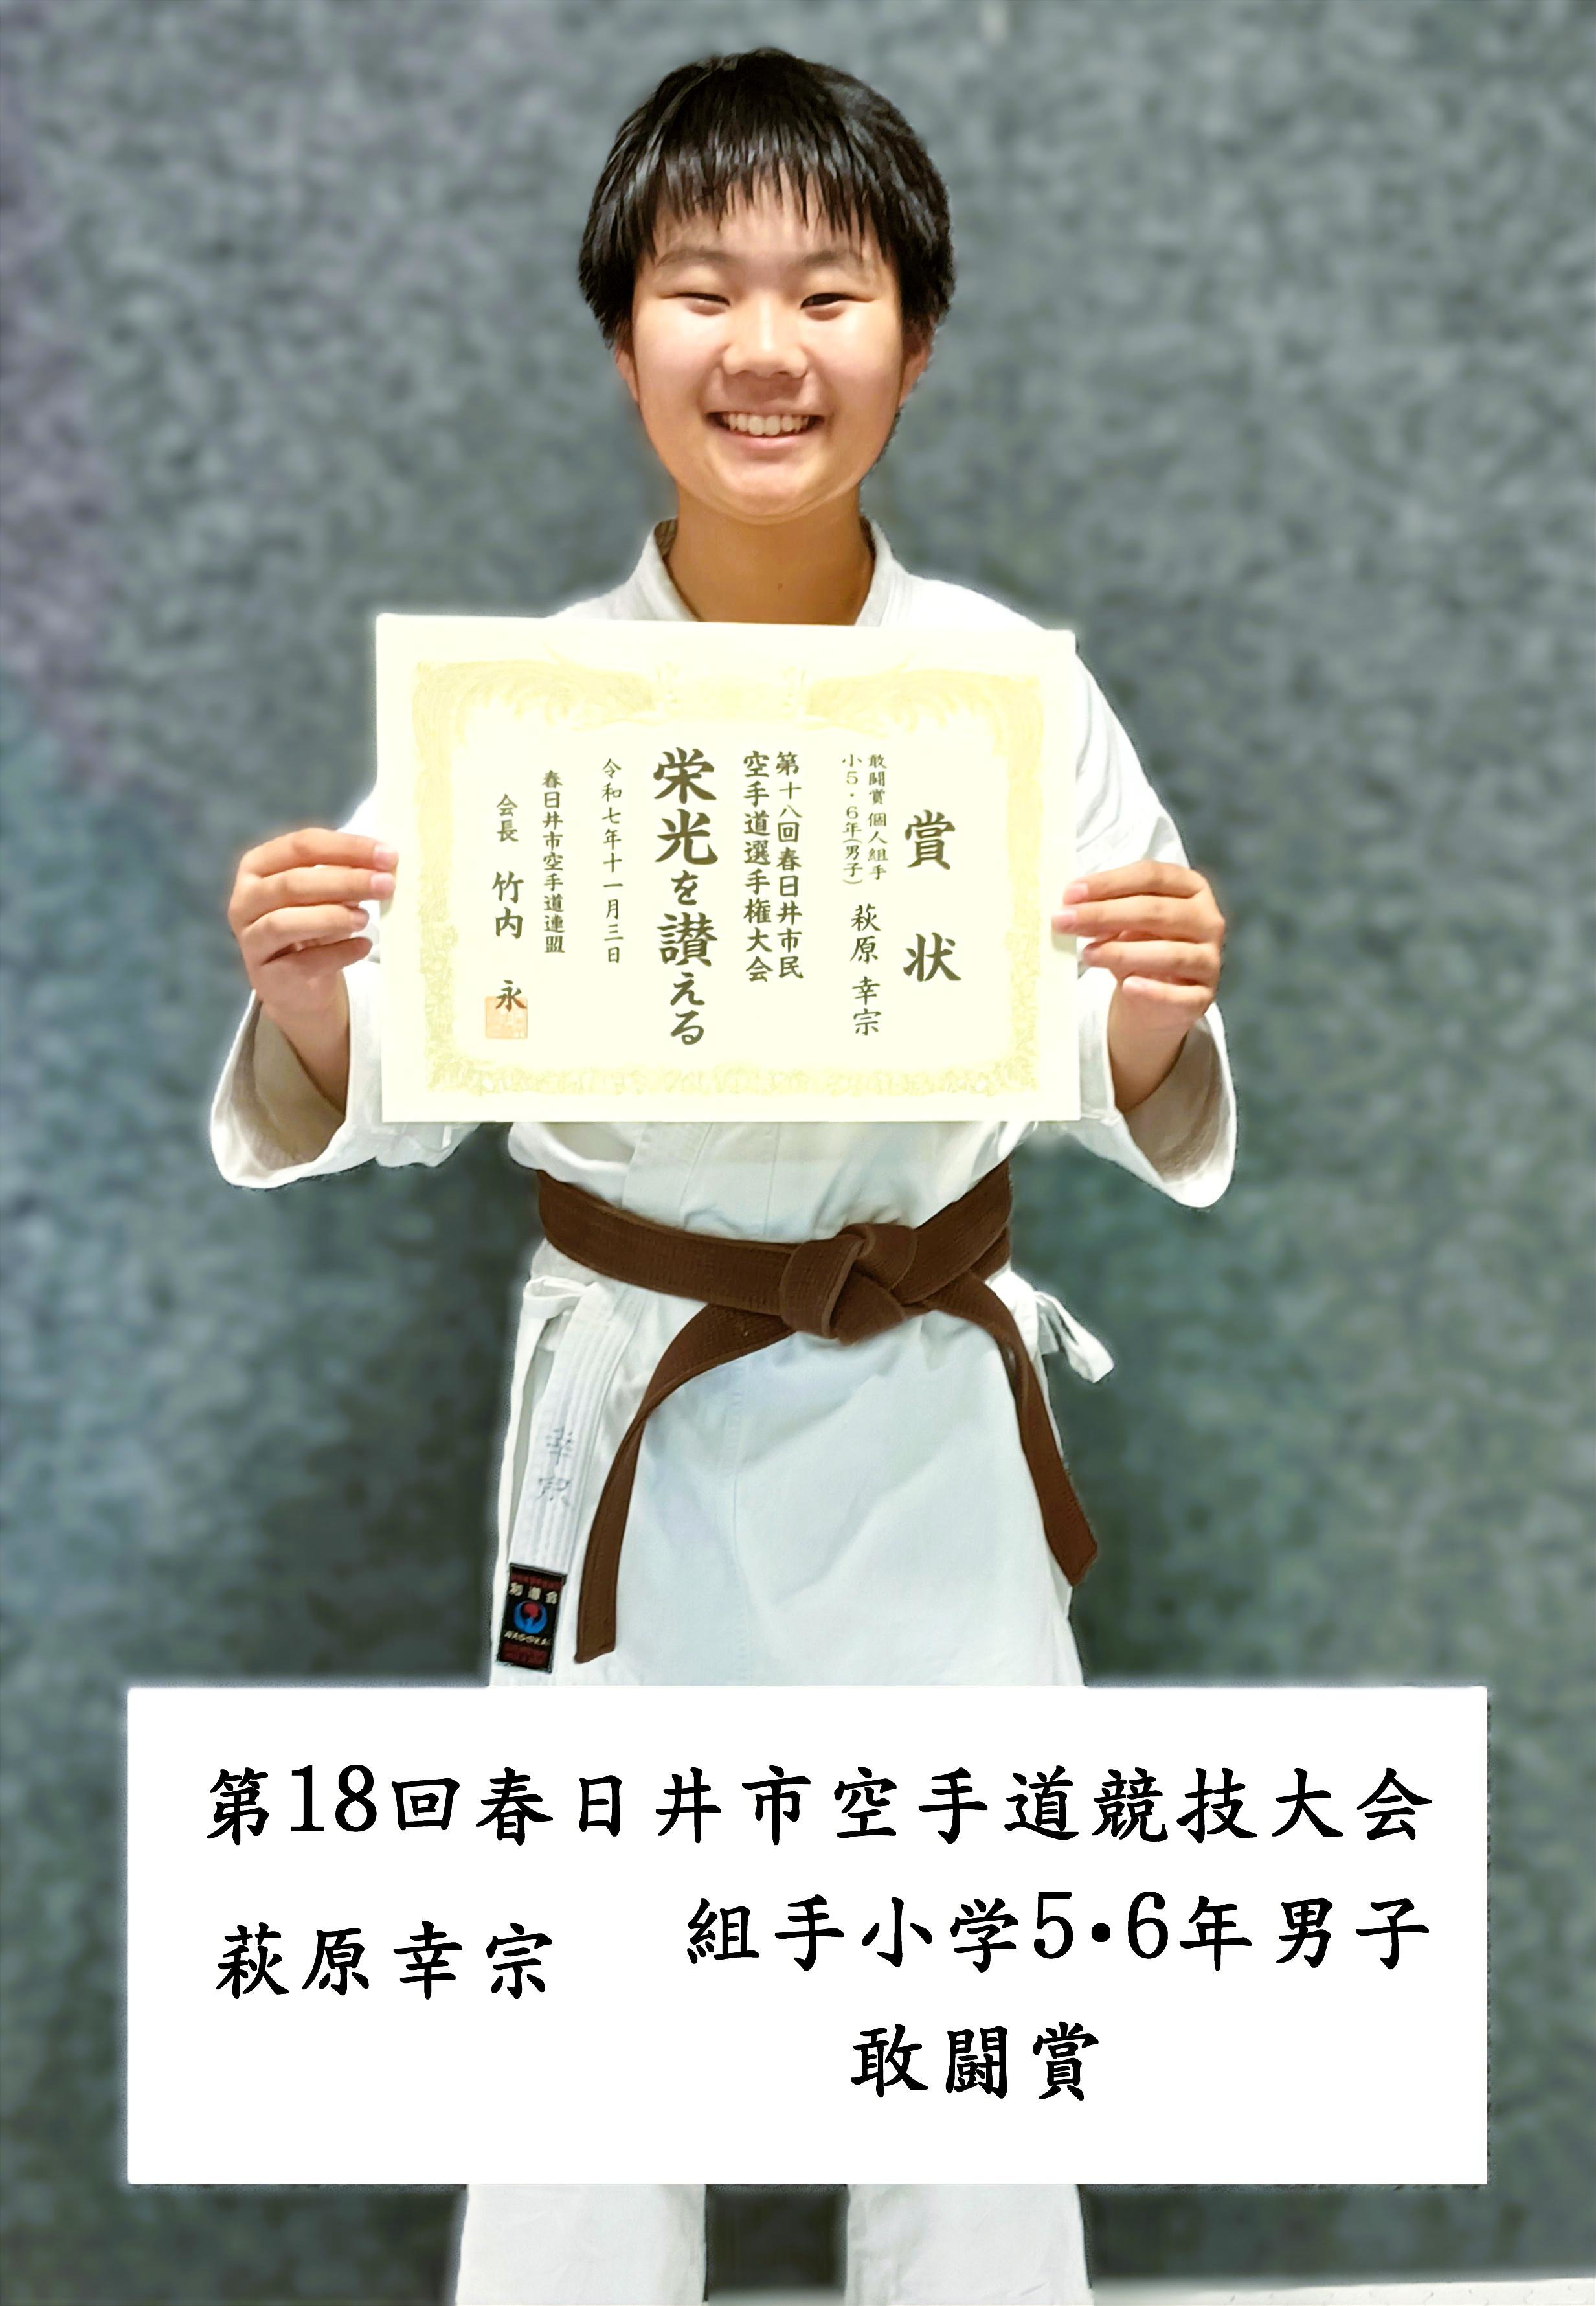 賞状
敢闘賞 個人組手
小5・6年(男子)
萩原 幸宗
第十八回春日井市民
空手道選手権大会
栄光を讃える
令和七年十一月三日
春日井市空手道連盟
会長 竹内 永
幸宗
第18回春日井市空手道競技大会
萩原幸宗
組手小学5・6年男子
敢闘賞